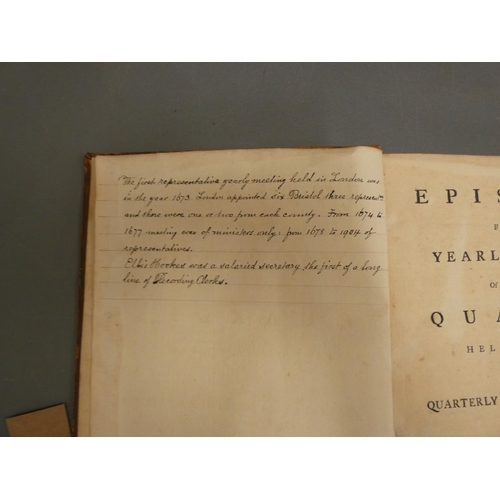 The first representative yearly meeting held in London was
in the year 1673. London appointed six Bristol three represent
and there were one or two from each county. From 1674 to
1677 meeting was of ministers only: from 1678 to 1904 of
representatives.
Ellis Hookes was a salaried secretary the first of a long
line of Recording Clerks.
EPIS
F
YEARL
OF
QUA
HEL
QUARTERLY